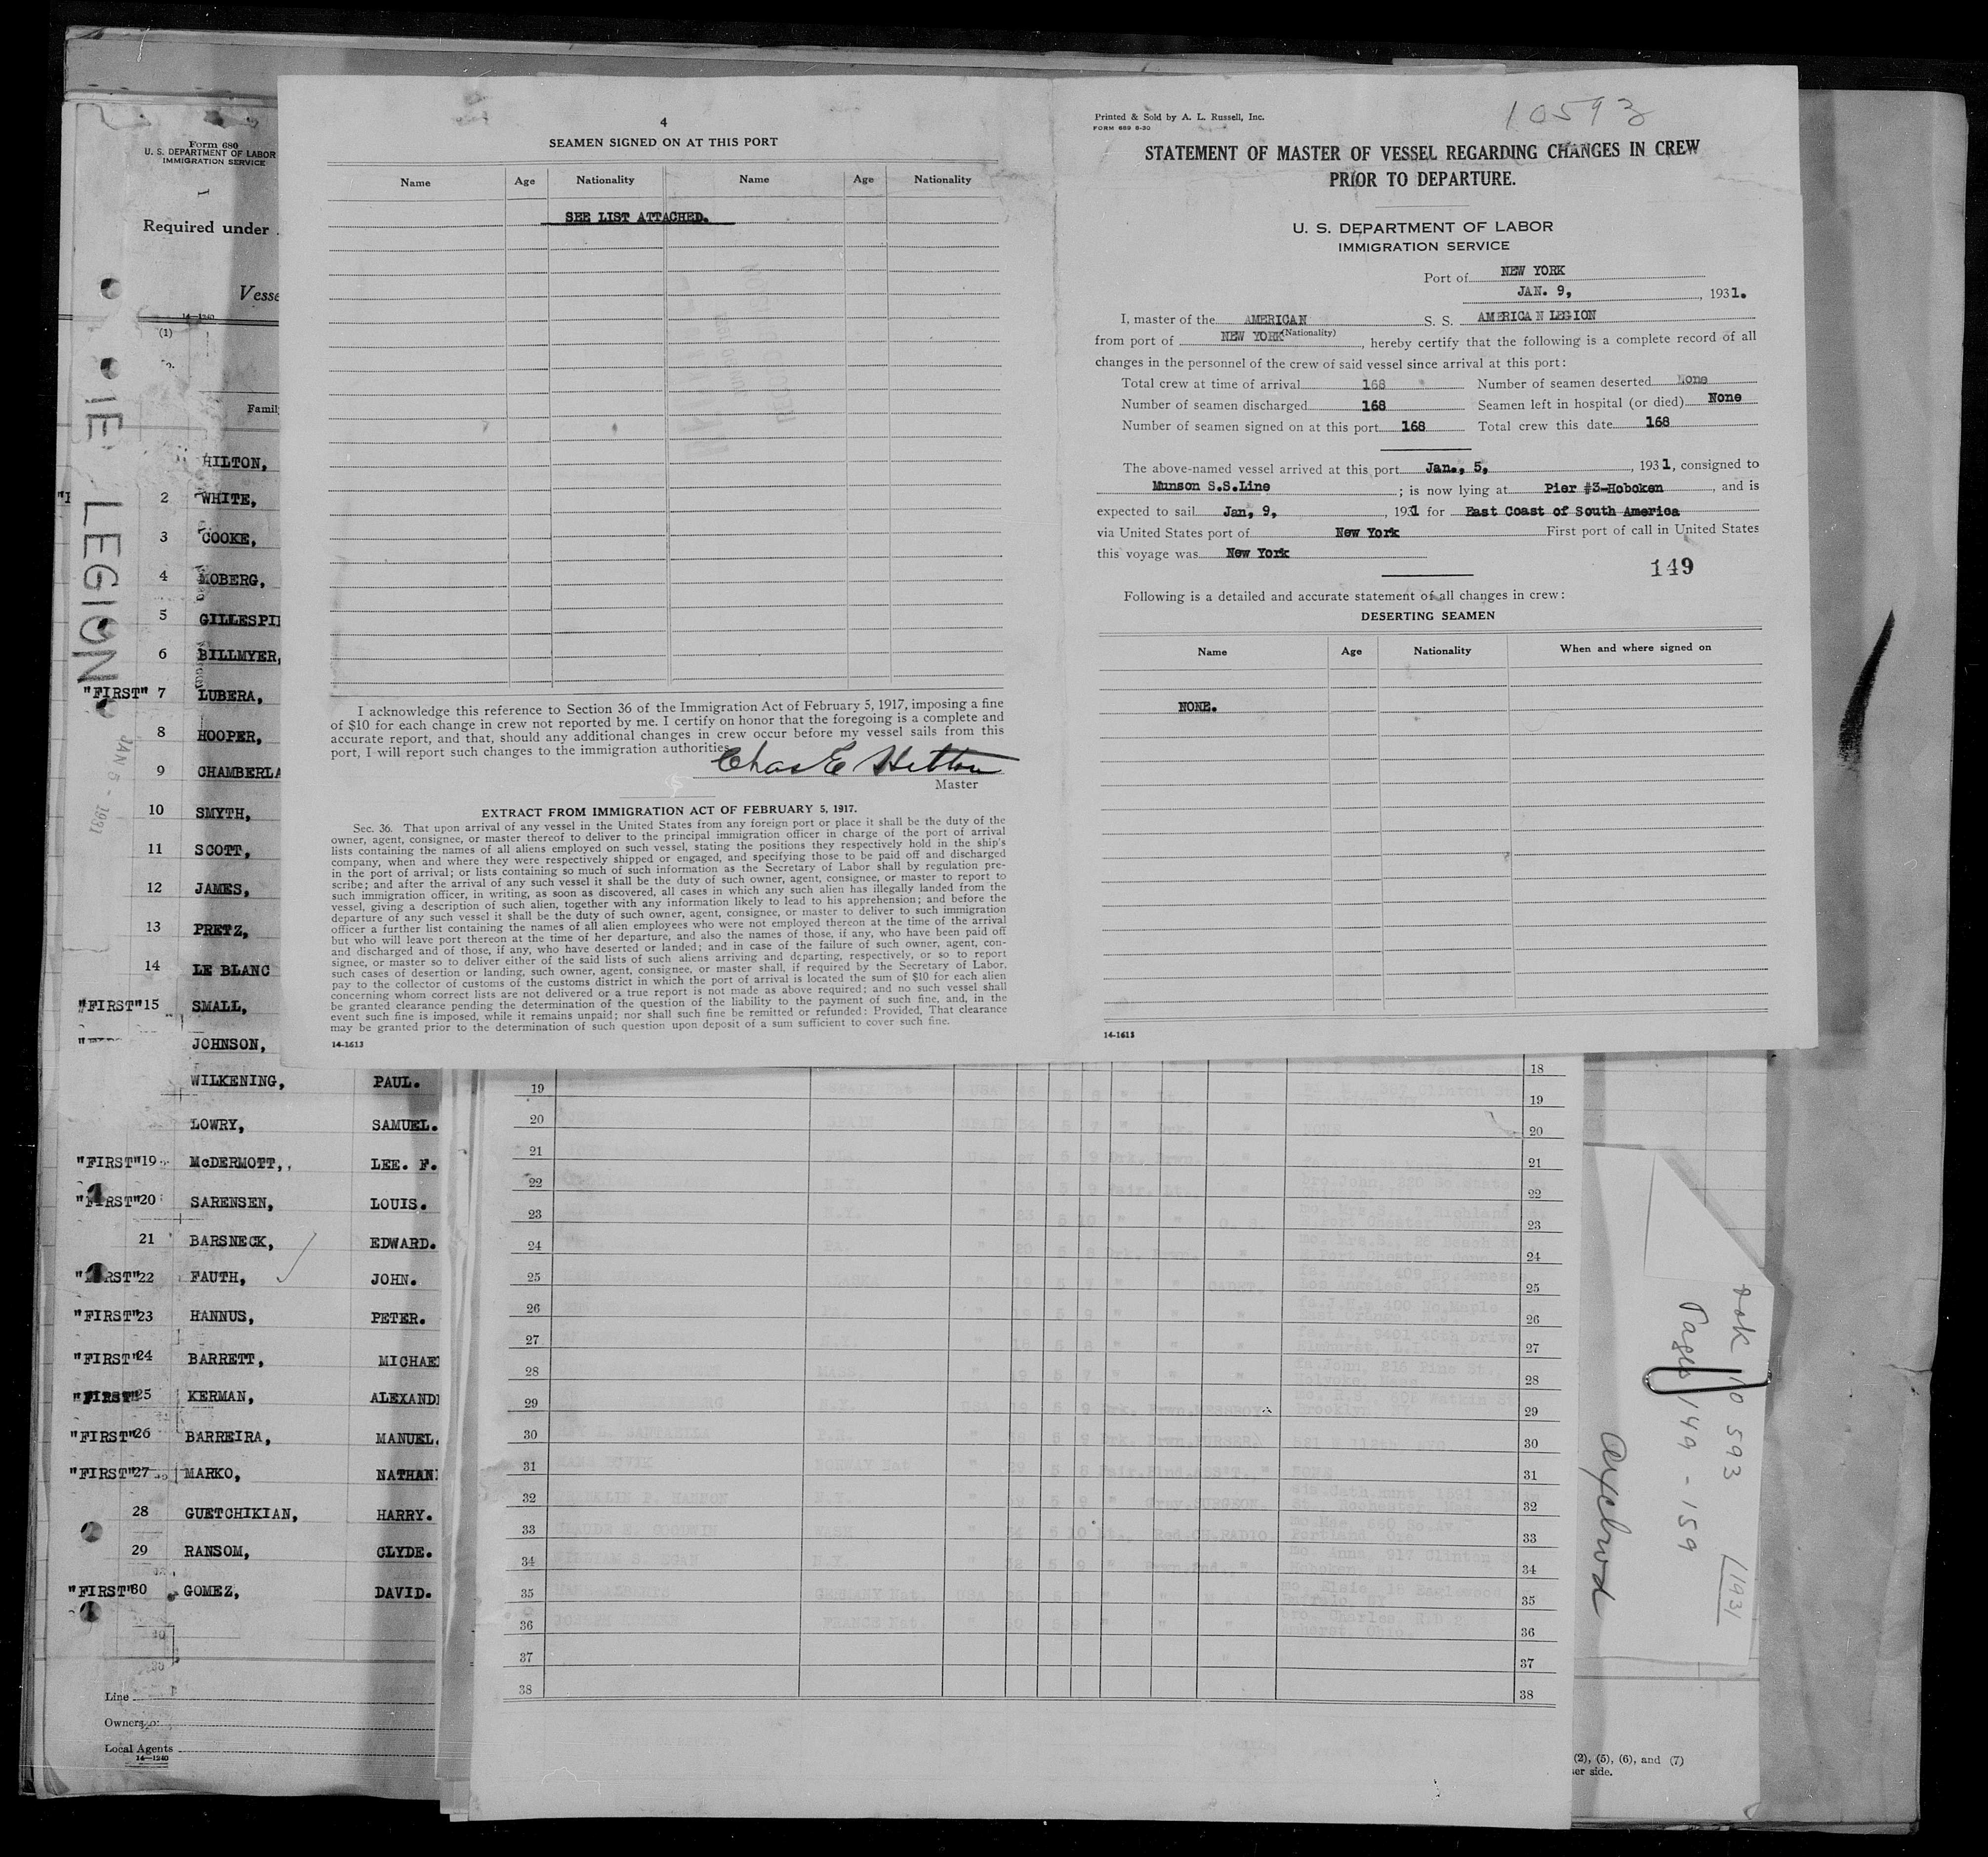 4
SEAMEN SIGNED ON AT THIS PORT
Name Age Nationality Name Age Nationality
SEE LIST ATTACHED.
I acknowledge this reference to Section 36 of the Immigration Act of February 5, 1917, imposing a fine
of $10 for each change in crew not reported by me. I certify on honor that the foregoing is a complete and
accurate report, and that, should any additional changes in crew occur before my vessel sails from this
port, I will report such changes to the immigration authorities.
Chas E Hilton
Master
EXTRACT FROM IMMIGRATION ACT OF FEBRUARY 5, 1917.
Sec. 36. That upon arrival of any vessel in the United States from any foreign port or place it shall be the duty of the
owner, agent, consignee, or master thereof to deliver to the principal immigration officer in charge of the port of arrival
lists containing the names of all aliens employed on such vessel, stating the positions they respectively hold in the ship's
company, when and where they were respectively shipped or engaged, and specifying those to be paid off and discharged
in the port of arrival; or lists containing so much of such information as the Secretary of Labor shall by regulation pre-
scribe; and after the arrival of any such vessel it shall be the duty of such owner, agent, consignee, or master to report to
such immigration officer, in writing, as soon as discovered, all cases in which any such alien has illegally landed from the
vessel, giving a description of such alien, together with any information likely to lead to his apprehension; and before the
departure of any such vessel it shall be the duty of such owner, agent, consignee, or master to deliver to such immigration
officer a further list containing the names of all alien employees who were not employed thereon at the time of the arrival
but who will leave port thereon at the time of her departure, and also the names of those, if any, who have been paid off
and discharged and of those, if any, who have deserted or landed; and in case of the failure of such owner, agent, con-
signee, or master so to deliver either of the said lists of such aliens arriving and departing, respectively, or so to report
such cases of desertion or landing, such owner, agent, consignee, or master shall, if required by the Secretary of Labor,
pay to the collector of customs of the customs district in which the port of arrival is located the sum of $10 for each alien
concerning whom correct lists are not delivered or a true report is not made as above required; and no such vessel shall
be granted clearance pending the determination of the question of the liability to the payment of such fine, and, in the
event such fine is imposed, while it remains unpaid; nor shall such fine be remitted or refunded: Provided, That clearance
may be granted prior to the determination of such question upon deposit of a sum sufficient to cover such fine.
14-1613
10593
Printed & Sold by A. L. Russell, Inc.
FORM 689 8-30
STATEMENT OF MASTER OF VESSEL REGARDING CHANGES IN CREW
PRIOR TO DEPARTURE.
U. S. DEPARTMENT OF LABOR
IMMIGRATION SERVICE
Port of NEW YORK
JAN. 9, , 1931.
I, master of the AMERICAN S. S. AMERICAN LEGION
(Nationality)
from port of NEW YORK, hereby certify that the following is a complete record of all
changes in the personnel of the crew of said vessel since arrival at this port:
Total crew at time of arrival 168 Number of seamen deserted None
Number of seamen discharged 168 Seamen left in hospital (or died) None
Number of seamen signed on at this port 168 Total crew this date 168
The above-named vessel arrived at this port Jan., 5, , 1931, consigned to
Munson S.S.Line ; is now lying at Pier #3-Hoboken , and is
expected to sail Jan, 9, , 1931 for East Coast of South America
via United States port of New York First port of call in United States
this voyage was New York
149
Following is a detailed and accurate statement of all changes in crew:
DESERTING SEAMEN
Name Age Nationality When and where signed on
NONE.
14-1613
Form 680
U. S. DEPARTMENT OF LABOR
IMMIGRATION SERVICE
Required under
Vesse
14-1240
(1)
Famil
LEGION
JAN 5 - 1931
HILTON,
2 WHITE,
3 COOKE,
4 MOBERG,
5 GILLESPI
6 BILLMYER,
"FIRST" 7 LUBERA,
8 HOOPER,
9 CHAMBERLA
10 SMYTH,
11 SCOTT,
12 JAMES,
13 PRETZ,
14 LE BLANC
"FIRST"15 SMALL,
JOHNSON,
WILKENING, PAUL.
LOWRY, SAMUEL.
"FIRST"19 McDERMOTT, LEE. F.
"FIRST"20 SARENSEN, LOUIS.
21 BARSNECK, EDWARD.
"FIRST"22 FAUTH, JOHN.
"FIRST"23 HANNUS, PETER.
"FIRST"24 BARRETT, MICHAE
"FIRST"25 KERMAN, ALEXAND
"FIRST"26 BARREIRA, MANUEL.
"FIRST"27 MARKO, NATHAN
28 GUETCHIKIAN, HARRY.
29 RANSOM, CLYDE.
"FIRST"30 GOMEZ, DAVID.
Line
Owners
Local Agents
14-1240
18
19 19
20 20
21 21
22 22
23 23
24 24
25 25
26 26
27 27
28 28
29 29
30 30
31 31
32 32
33 33
34 34
35 35
36 36
37 37
38 38
10 593
Pages 149 - 159
1931
(2), (5), (6), and (7)
er side.